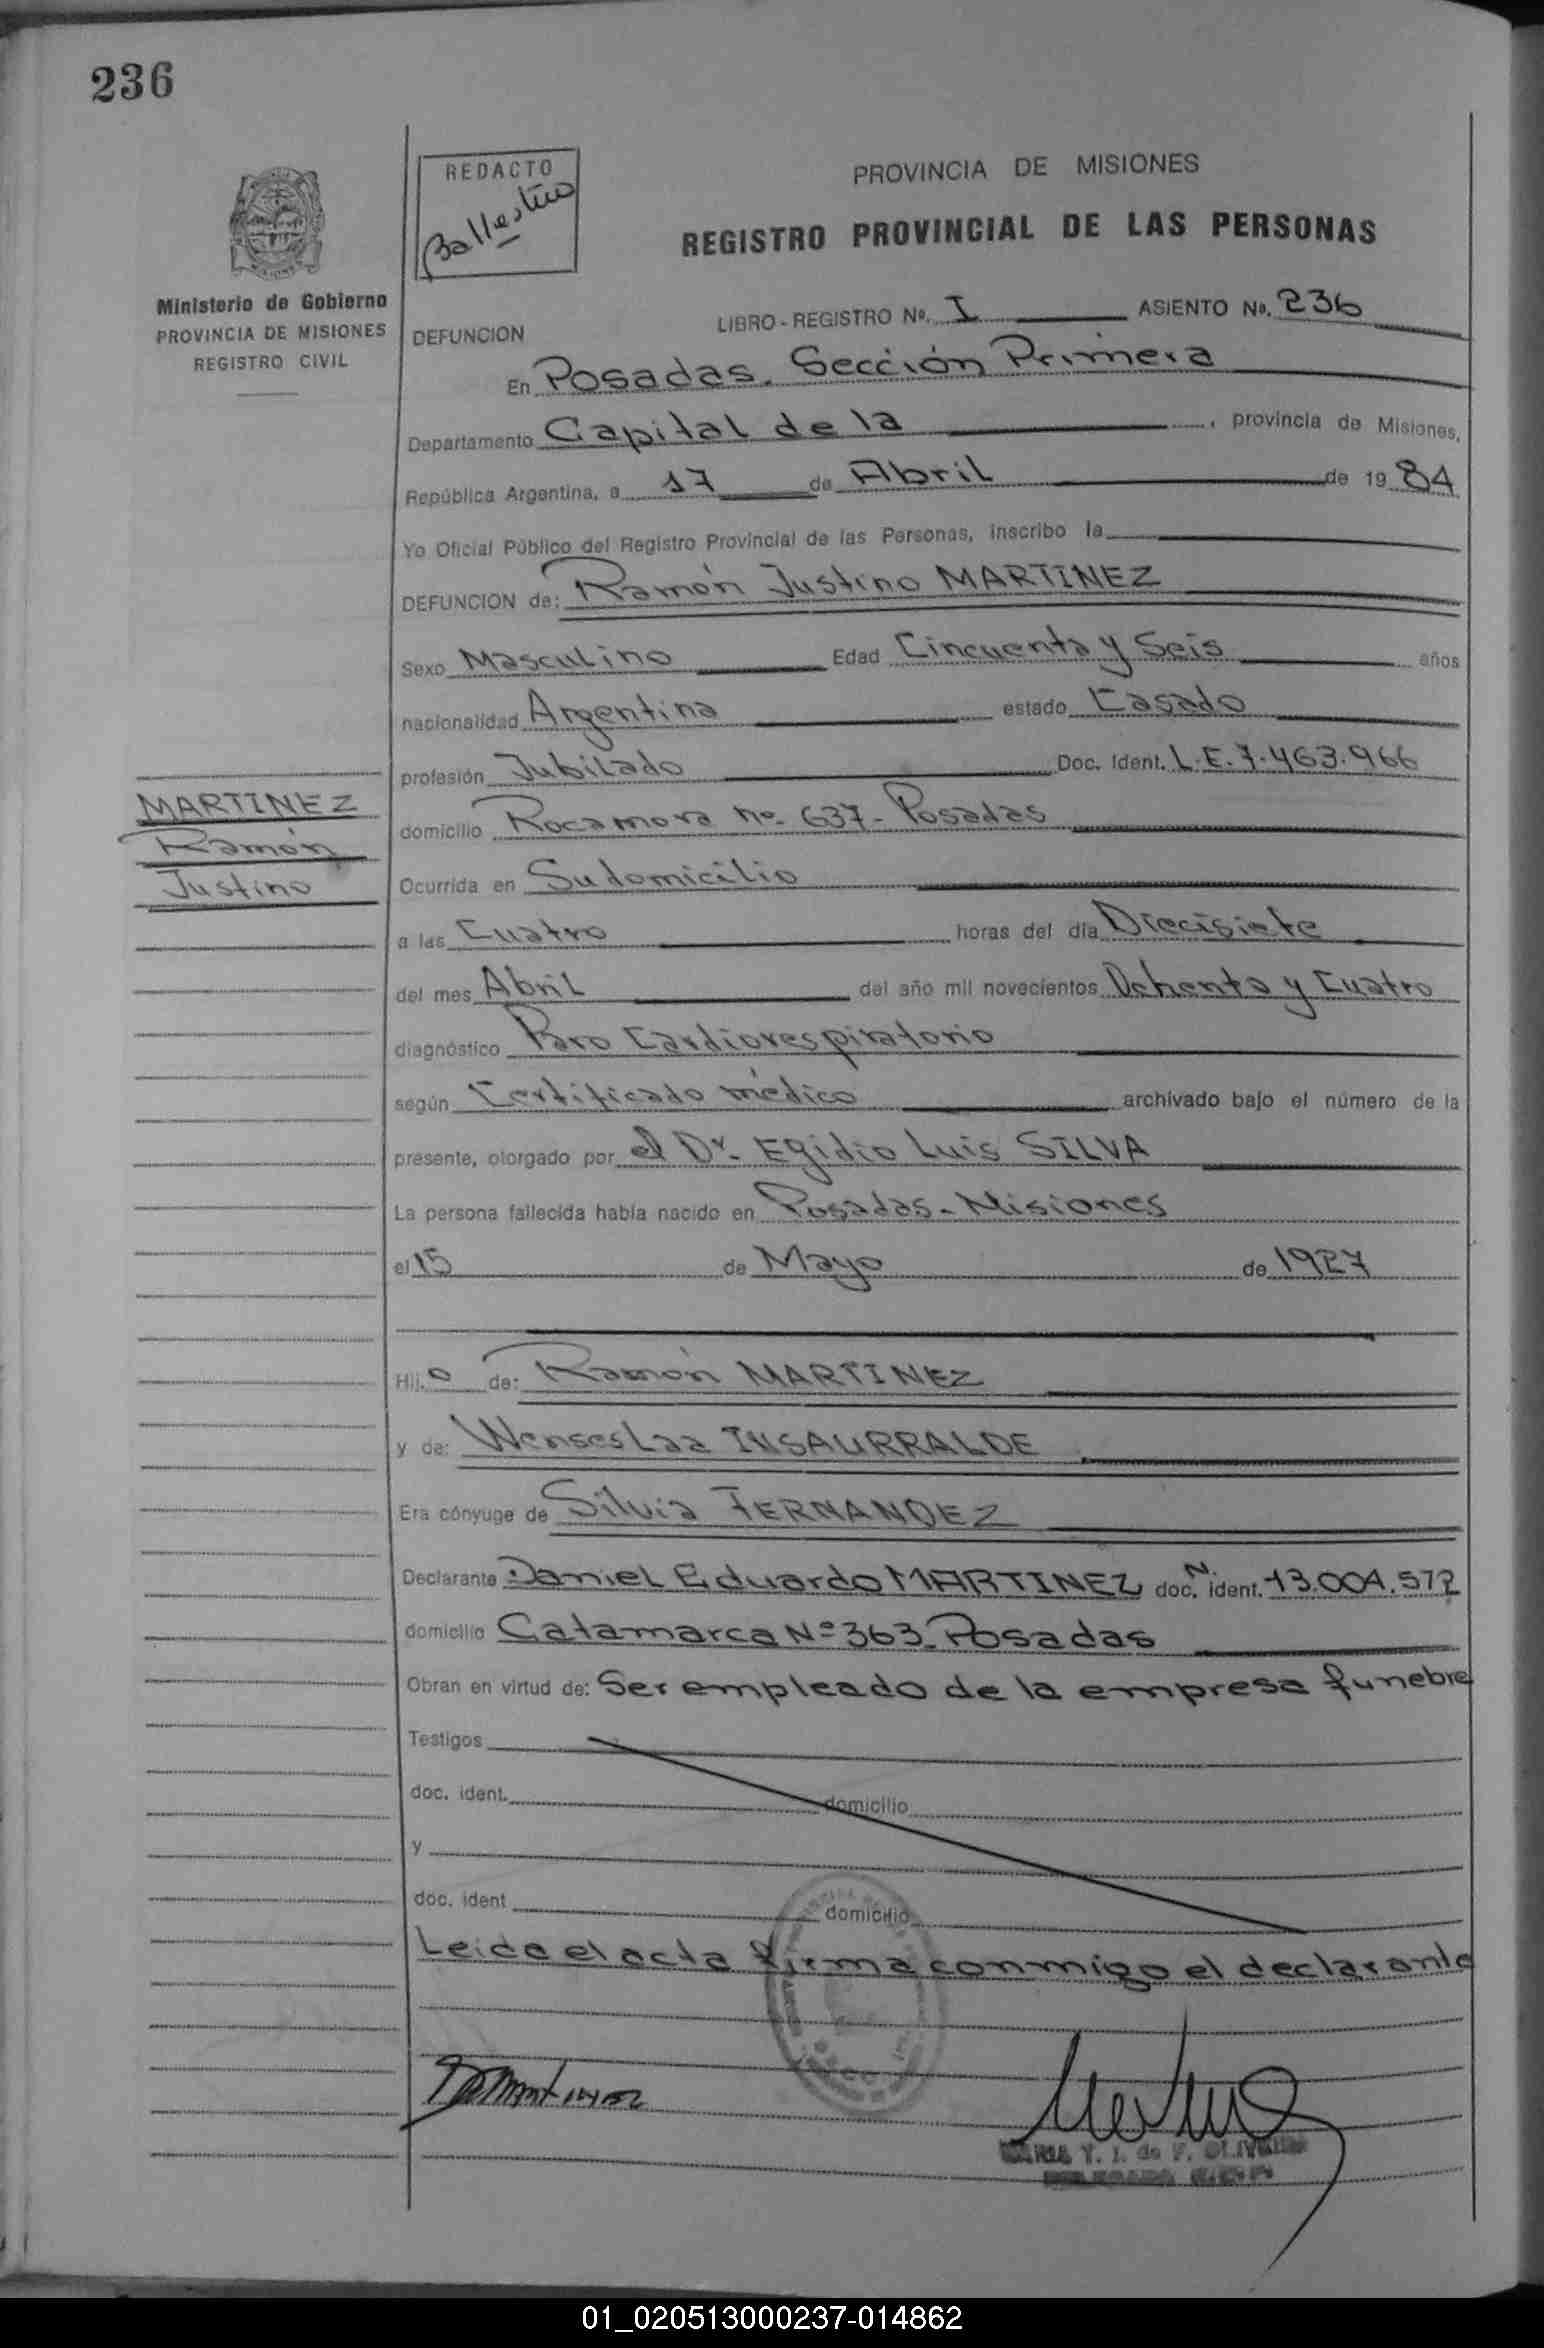 236
REDACTO
Ballestino
PROVINCIA DE MISIONES
REGISTRO PROVINCIAL DE LAS PERSONAS
Ministerio de Gobierno
PROVINCIA DE MISIONES
REGISTRO CIVIL
DEFUNCION LIBRO - REGISTRO Nº. I ASIENTO Nº. 236
En Posadas. Sección Primera
Departamento Capital de la , provincia de Misiones,
República Argentina, a 17 de Abril de 19 84
Yo Oficial Público del Registro Provincial de las Personas, inscribo la
DEFUNCION de: Ramón Justino MARTINEZ
Sexo Masculino Edad Cincuenta y Seis años
nacionalidad Argentina estado Casado
profesión Jubilado Doc. Ident. L.E. 7.463.966
MARTINEZ
Ramón
Justino
domicilio Rocamora nº 637- Posadas
Ocurrida en Su domicilio
a las Cuatro horas del día Diecisiete
del mes Abril del año mil novecientos Ochenta y Cuatro
diagnóstico Paro Cardiorespiratorio
según Certificado médico archivado bajo el número de la
presente, otorgado por el Dr. Egidio Luis SILVA
La persona fallecida había nacido en Posadas - Misiones
el 15 de Mayo de 1927
Hij. o de: Ramón MARTINEZ
y de: Wenseslaa INSAURRALDE
Era cónyuge de Silvia FERNANDEZ
Declarante Daniel Eduardo MARTINEZ doc. N. ident. 13.004.572
domicilio Catamarca Nº 363. Posadas
Obran en virtud de: Ser empleado de la empresa funebre
Testigos
doc. ident. domicilio
y
doc. ident domicilio
Leida el acta firma conmigo el declarante
D Martinez
MARIA Y. I. de F. OLIVEIRA
01_020513000237-014862